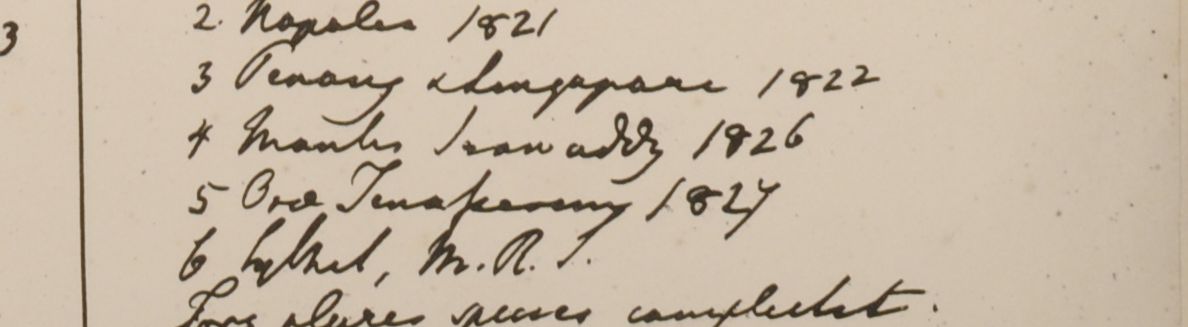 3
2. Napalia 1821
3 Penang & Singapore 1822
4 Montes Irawaddy 1826
5 Ora Tenasserim 1827
6 Sylhet, M. R. S.
Fors plures species complectet.